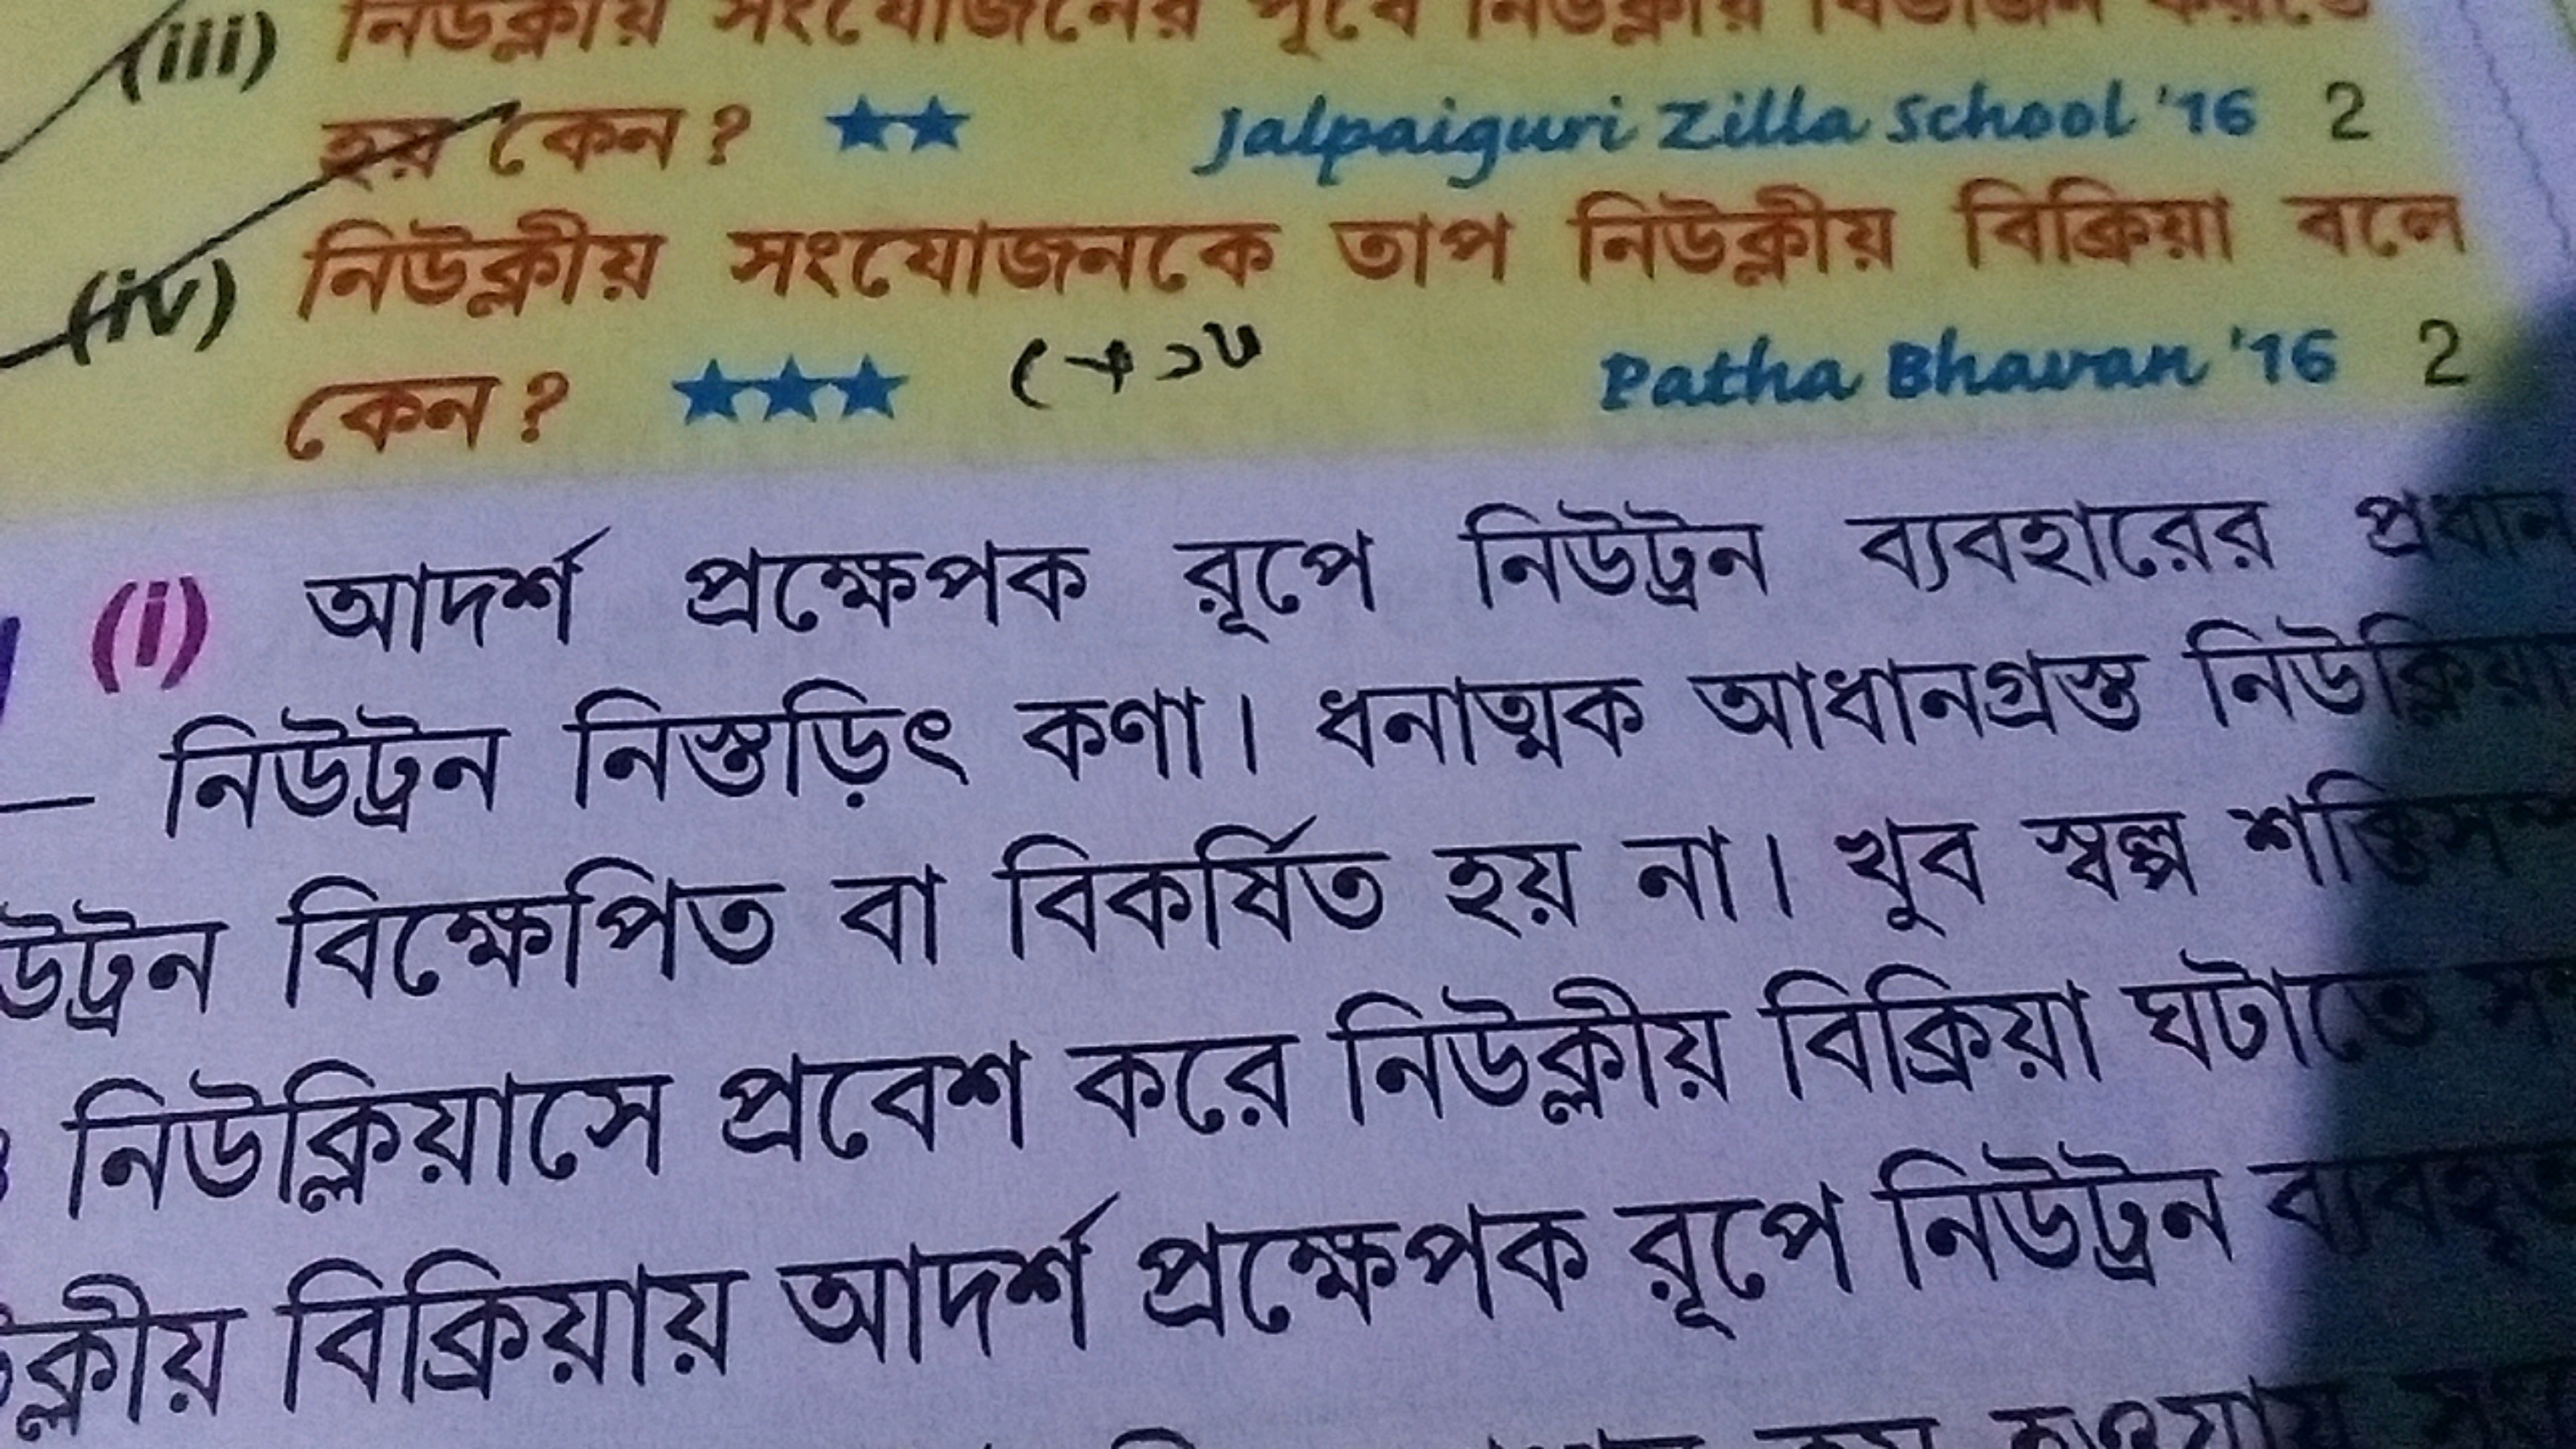 (iii) নিউক্লীয় সংযোজনের পূর্বে নিউক্লীয় বিভাজন
হয় কেন? ★★ Jalpaiguri Zilla School '16 2
(iv) নিউক্লীয় সংযোজনকে তাপ নিউক্লীয় বিক্রিয়া বলে
কেন? ★★★ Patha Bhavan '16 2
(i) আদর্শ প্রক্ষেপক রূপে নিউট্রন ব্যবহারের প্রধান
— নিউট্রন নিস্তড়িৎ কণা। ধনাত্মক আধানগ্রস্ত
উট্রন বিক্ষেপিত বা বিকর্ষিত হয় না। খুব স্বল্প
নিউক্লিয়াসে প্রবেশ করে নিউক্লীয় বিক্রিয়া ঘটাতে
ক্লীয় বিক্রিয়ায় আদর্শ প্রক্ষেপক রূপে নিউট্রন